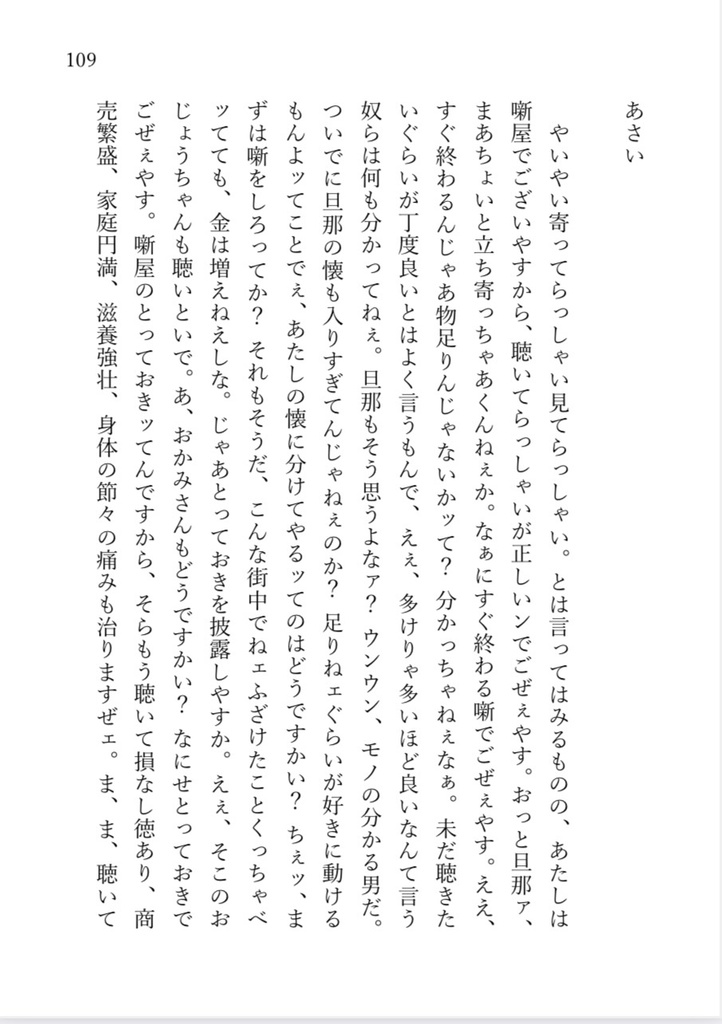 109
あさい
やいやい寄ってらっしゃい見てらっしゃい。とは言ってはみるものの、あたしは
噺屋でございやすから、聴いてらっしゃいが正しいンでごぜぇやす。おっと旦那ァ、
まあちょいと立ち寄っちゃあくんねぇか。なぁにすぐ終わる噺でごぜぇやす。ええ、
すぐ終わるんじゃあ物足りんじゃないかッて？ 分かっちゃねぇなぁ。未だ聴きた
いぐらいが丁度良いとはよく言うもんで、えぇ、多けりゃ多いほど良いなんて言う
奴らは何も分かってねぇ。旦那もそう思うよなァ？ ウンウン、モノの分かる男だ。
ついでに旦那の懐も入りすぎてんじゃねぇのか？ 足りねェぐらいが好きに動ける
もんよッてことでぇ、あたしの懐に分けてやるッてのはどうですかい？ ちぇッ、ま
ずは噺をしろってか？ それもそうだ、こんな街中でねェふざけたことくっちゃべ
ッてても、金は増えねえしな。じゃあとっておきを披露しやすか。えぇ、そこのお
じょうちゃんも聴いといで。あ、おかみさんもどうですかい？ なにせとっておきで
ごぜぇやす。噺屋のとっておきッてんですから、そらもう聴いて損なし徳あり、商
売繁盛、家庭円満、滋養強壮、身体の節々の痛みも治りますぜェ。ま、ま、聴いて